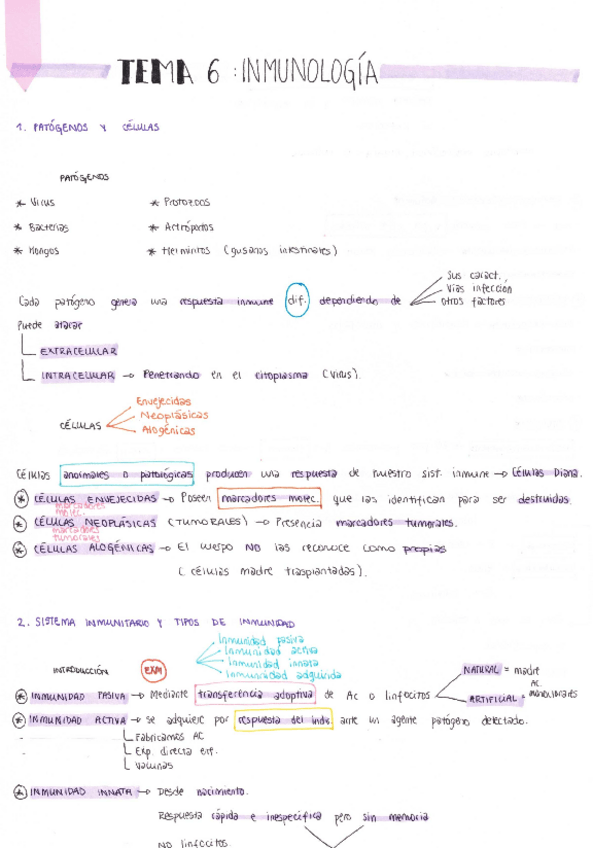 TEMA 6 : INMUNOLOGÍA
1. PATÓGENOS Y CÉLULAS
PATÓGENOS
* Virus * Protozoos
* Bacterias * Artrópodos
* Hongos * Helmintos (gusanos intestinales)
Sus caract.
Vías infección
Cada patógeno genera una respuesta inmune dif. dependiendo de otros factores
Puede atacar
EXTRACELULAR
INTRACELULAR → Penetrando en el citoplasma (Virus).
Envejecidas
Neoplásicas
CÉLULAS
Alogénicas
Células anormales o patológicas producen una respuesta de nuestro sist. inmune → Células Diana.
* CÉLULAS ENVEJECIDAS → Poseen marcadores molec. que las identifican para ser destruidas
marcadores
molec.
* CÉLULAS NEOPLÁSICAS (TUMORALES) → Presencia marcadores tumorales.
marcadores
tumorales
* CÉLULAS ALOGÉNICAS → El cuerpo NO las reconoce como propias
(células madre trasplantadas).
2. SISTEMA INMUNITARIO Y TIPOS DE INMUNIDAD
Inmunidad pasiva
Inmunidad activa
Inmunidad innata
Inmunidad adquirida
INTRODUCCIÓN EXM
NATURAL = madre
* INMUNIDAD PASIVA → Mediante transferencia adoptiva de Ac o linfocitos
ARTIFICIAL = AC. monoclonales
* INMUNIDAD ACTIVA → se adquiere por respuesta del indv. ante un agente patógeno detectado.
Fabricamos AC
Exp. directa enf.
Vacunas
* INMUNIDAD INNATA → Desde nacimiento.
Respuesta rápida e inespecífica pero sin memoria
NO linfocitos